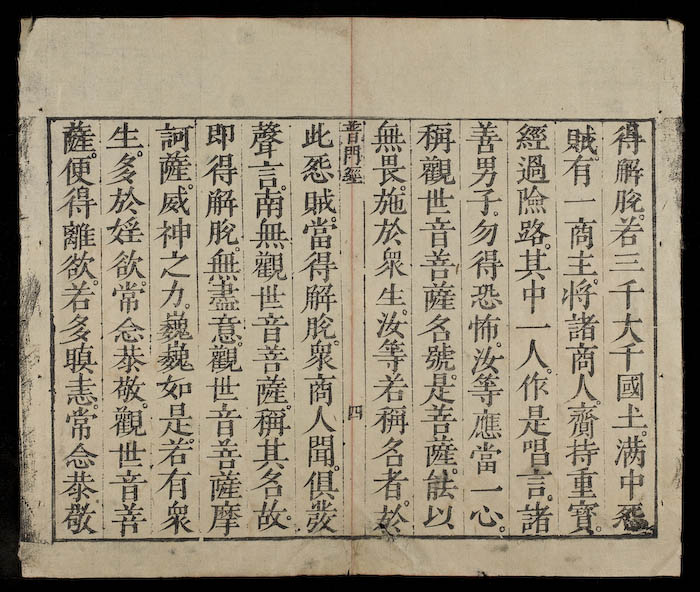 得解脫。若三千大千國土。滿中怨
賊。有一商主。將諸商人。齎持重寶。
經過險路。其中一人。作是唱言。諸
善男子。勿得恐怖。汝等應當一心。
稱觀世音菩薩名號。是菩薩。能以
無畏。施於眾生。汝等若稱名者。於
普門經
四
此怨賊。當得解脫。眾商人聞。俱發
聲言。南無觀世音菩薩。稱其名故。
即得解脫。無盡意。觀世音菩薩摩
訶薩。威神之力。巍巍如是。若有眾
生。多於婬欲。常念恭敬。觀世音菩
薩。便得離欲。若多瞋恚。常念恭敬